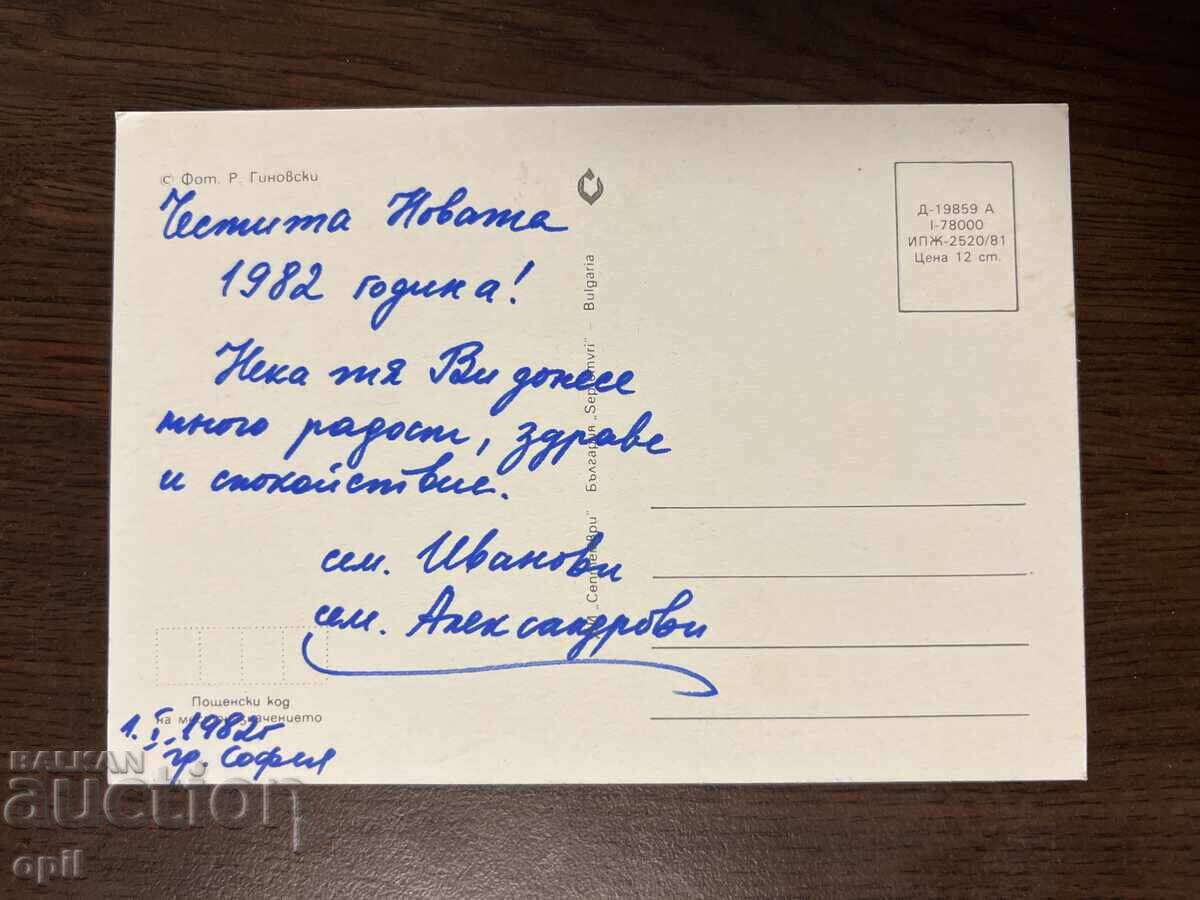 © Фот. Р. Гиновски
Честита Новата
1982 година!
Нека тя Ви донесе
много радост, здраве
и спокойствие.
сем. Иванови
сем. Александрови
Пощенски код
на
1. I. 1982г
гр. София
"Септември" България „Septemvri" – Bulgaria
Д-19859 А
I-78000
ИПЖ-2520/81
Цена 12 ст.
BALKAN
auction
opil